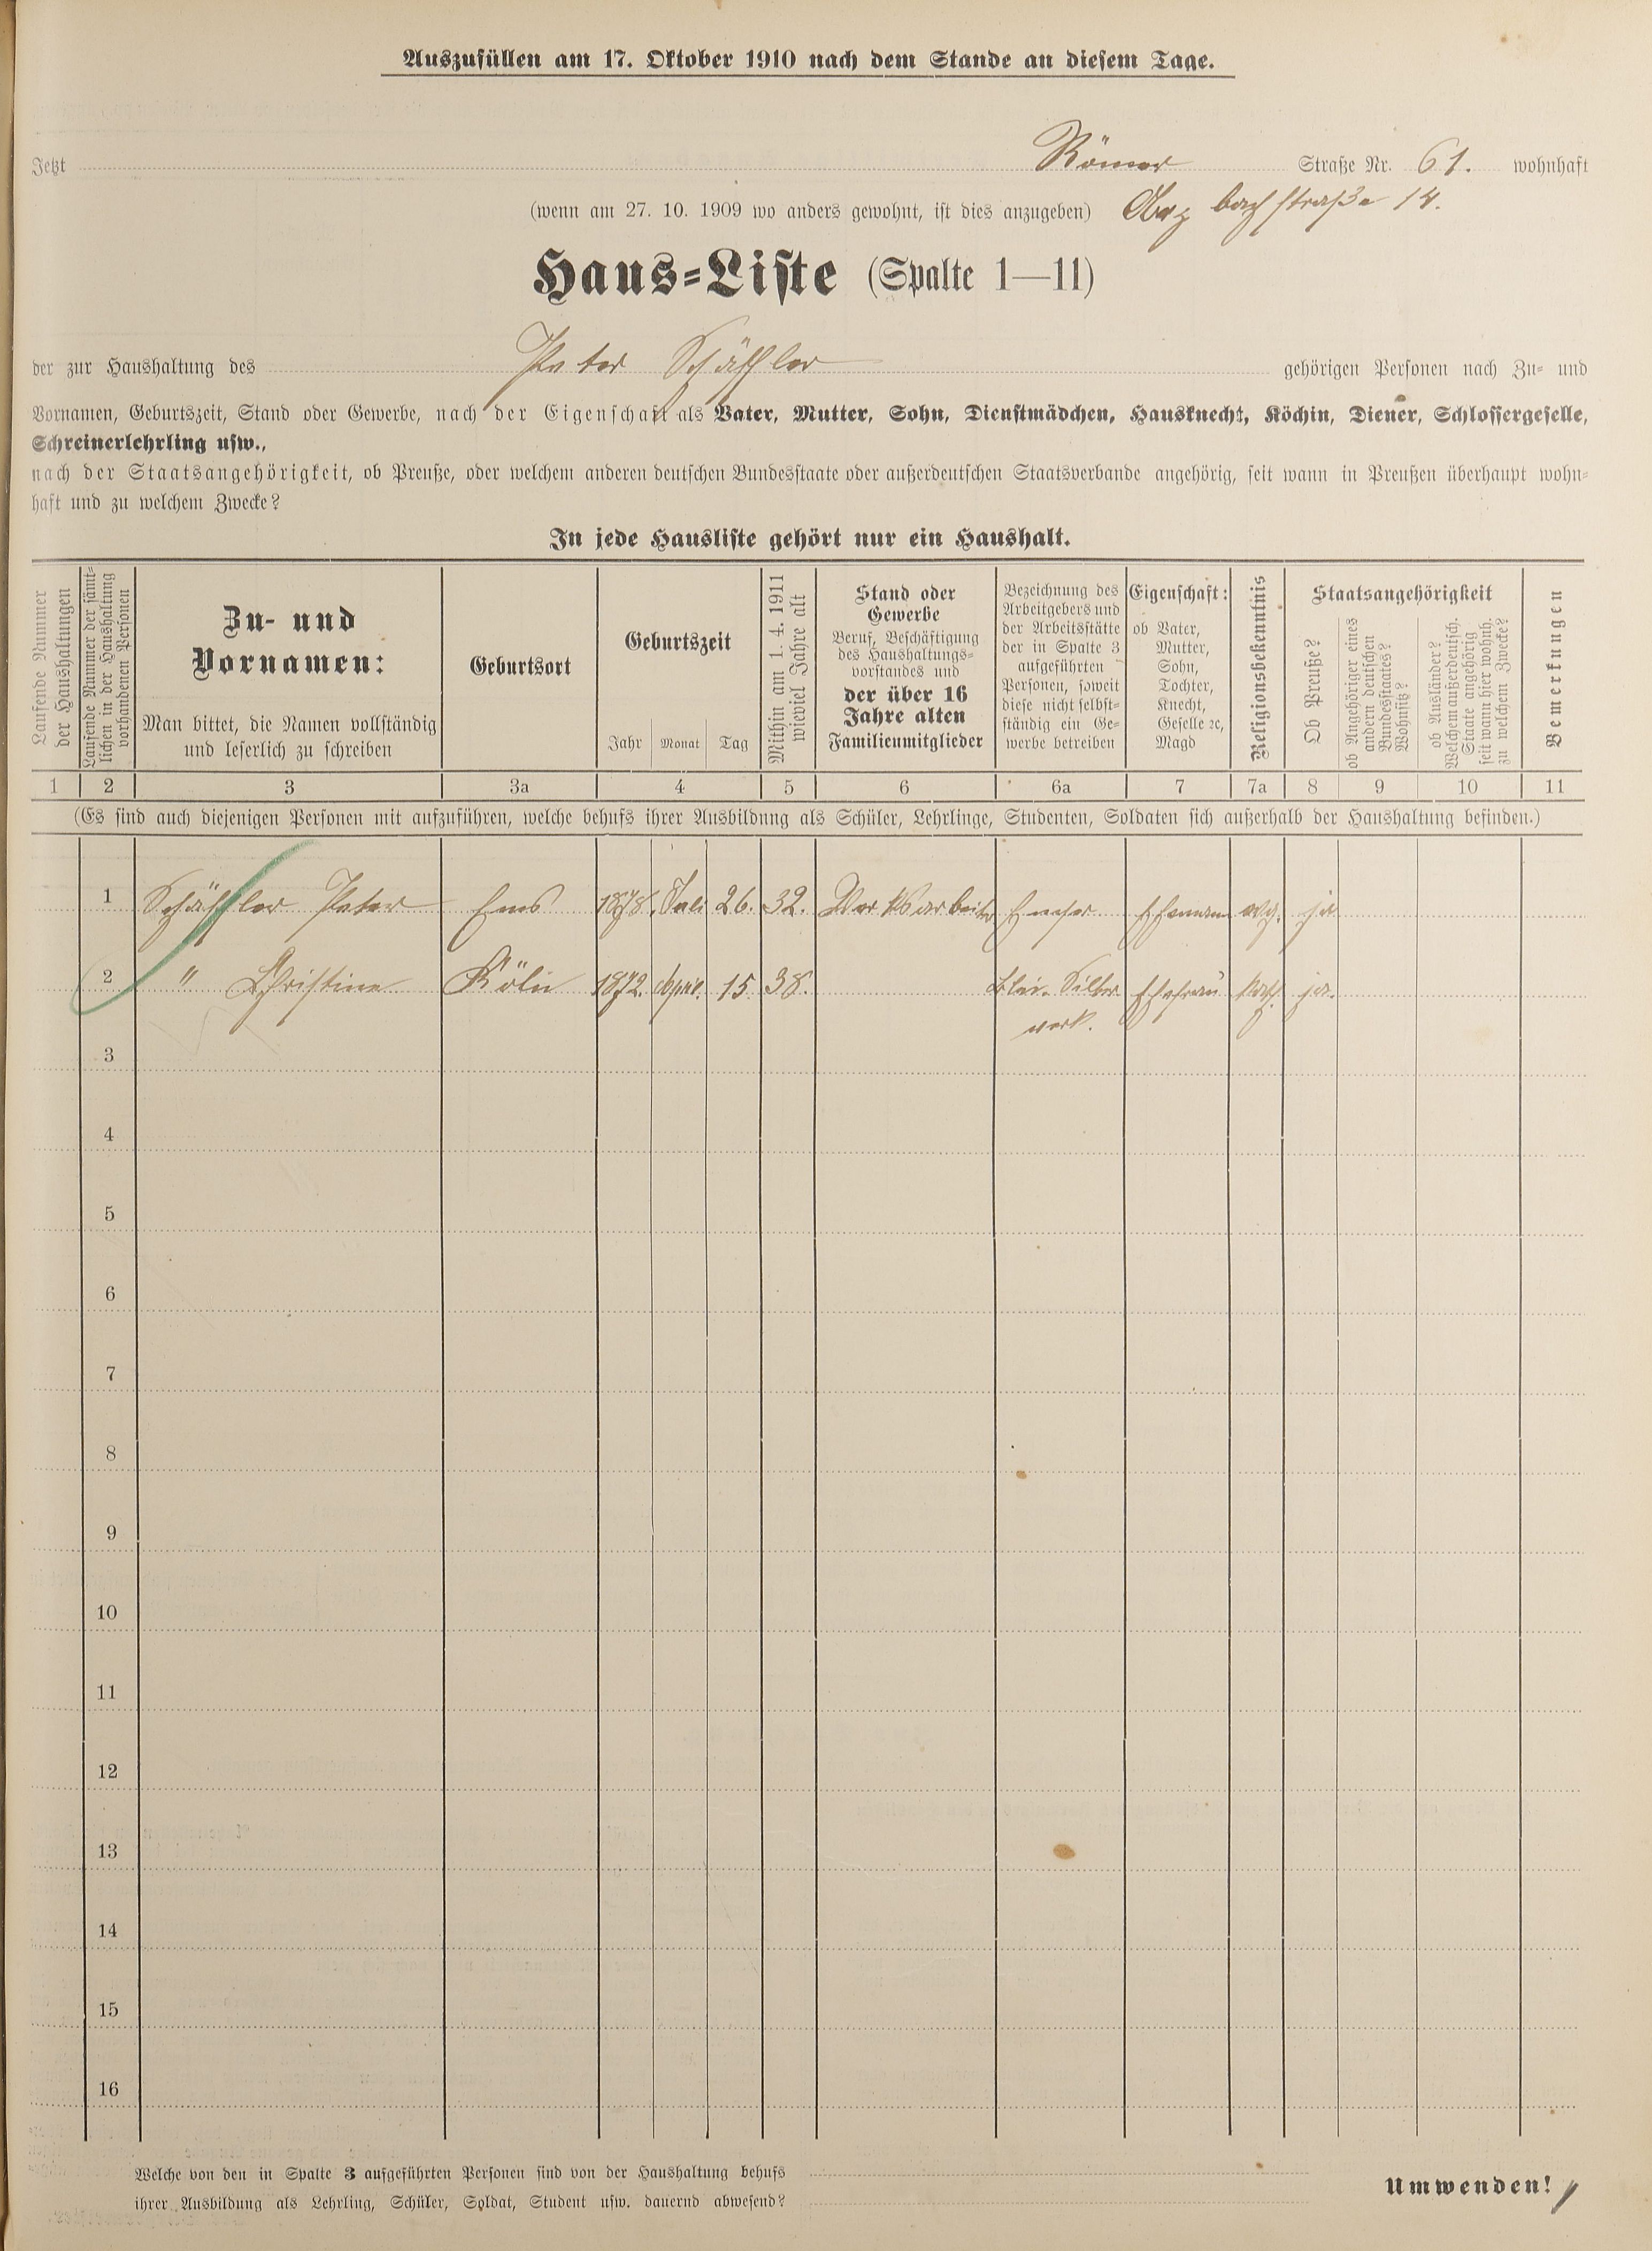 Auszufüllen am 17. Oktober 1910 nach dem Stande an diesem Tage.
Jetzt Römer Straße Nr. 61. wohnhaft
(wenn am 27. 10. 1909 wo anders gewohnt, ist dies anzugeben) bachstraße 14.
Haus-Liste (Spalte 1—11)
der zur Haushaltung des Peter Schäffler gehörigen Personen nach Zu- und
Vornamen, Geburtszeit, Stand oder Gewerbe, nach der Eigenschaft als Vater, Mutter, Sohn, Dienstmädchen, Hausknecht, Köchin, Diener, Schlossergeselle,
Schreinerlehrling usw.,
nach der Staatsangehörigkeit, ob Preuße, oder welchem anderen deutschen Bundesstaate oder außerdeutschen Staatsverbande angehörig, seit wann in Preußen überhaupt wohn-
haft und zu welchem Zwecke?
In jede Hausliste gehört nur ein Haushalt.
Laufende Nummer
der Haushaltungen
Laufende Nummer der sämt-
lichen in der Haushaltung
vorhandenen Personen
Zu- und
Vornamen:
Man bittet, die Namen vollständig
und leserlich zu schreiben
Geburtsort
Geburtszeit
Jahr Monat Tag
Mithin am 1. 4. 1911
wieviel Jahre alt
Stand oder
Gewerbe
Beruf, Beschäftigung
des Haushaltungs-
vorstandes und
der über 16
Jahre alten
Familienmitglieder
Bezeichnung des
Arbeitgebers und
der Arbeitsstätte
der in Spalte 3
aufgeführten
Personen, soweit
diese nicht selbst-
ständig ein Ge-
werbe betreiben
Eigenschaft:
ob Vater,
Mutter,
Sohn,
Tochter,
Knecht,
Geselle ꝛc,
Magd
Religionsbekenntnis
Staatsangehörigkeit
Ob Preuße?
ob Angehöriger eines
andern deutschen
Bundesstaates?
Wohnsitz?
ob Ausländer?
Welchem außerdeutsch.
Staate angehörig
seit wann hier wohnh.
zu welchem Zwecke?
Bemerkungen
1 2 3 3a 4 5 6 6a 7 7a 8 9 10 11
(Es sind auch diejenigen Personen mit aufzuführen, welche behufs ihrer Ausbildung als Schüler, Lehrlinge, Studenten, Soldaten sich außerhalb der Haushaltung befinden.)
1 Schäffler Peter Ems 1878. Juli 26. 32. Werksarbeiter Emser Ehemann evg. ja
2 " Christine Köln 1872. April. 15. 38. Blei- Silber Ehefrau kath. ja.
werk.
3
4
5
6
7
8
9
10
11
12
13
14
15
16
Welche von den in Spalte 3 aufgeführten Personen sind von der Haushaltung behufs
ihrer Ausbildung als Lehrling, Schüler, Soldat, Student usw. dauernd abwesend?
Umwenden!